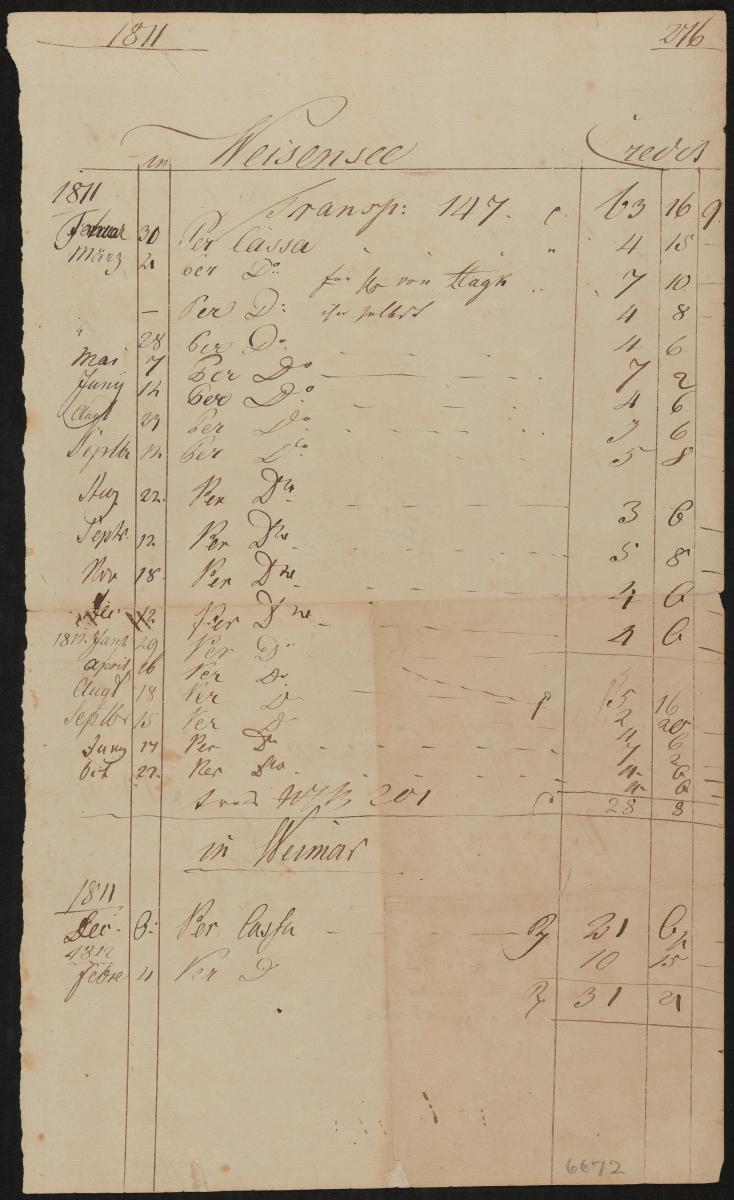 1811 276
in Weisensee Credit
1811
Transp: 147. 63 16 9
Februar 30 Per Cassa " 4 15 –
März 21 per Do: für Hr von Hagk 7 10 –
– Per D: ihn selbst 4 8
" 28 per Do 4 6
Mai 7 per Do 7 2
Juny 14 per Do 4 6
Augt 23 per Do 3 6
Septbr 12 per Do 5 8
Aug 22. Per Do 3 6
Septr. 12 Per Do 5 8
Nov 18. Per Do 4 6
Dec 12 Per Do 4 6
1812. Janr 29 Per Do
april 16 Per Do
Augt 18 Per D 16
Septbr 15 Per D 2 20
Juny 17 Per Do 7 2
Oct 22. Per Do
201 28 3
in Weimar
1811
Dec. 6: Per Cassa 21 6
1812
Febre 4 Per D 10 15 –
31 21
6672